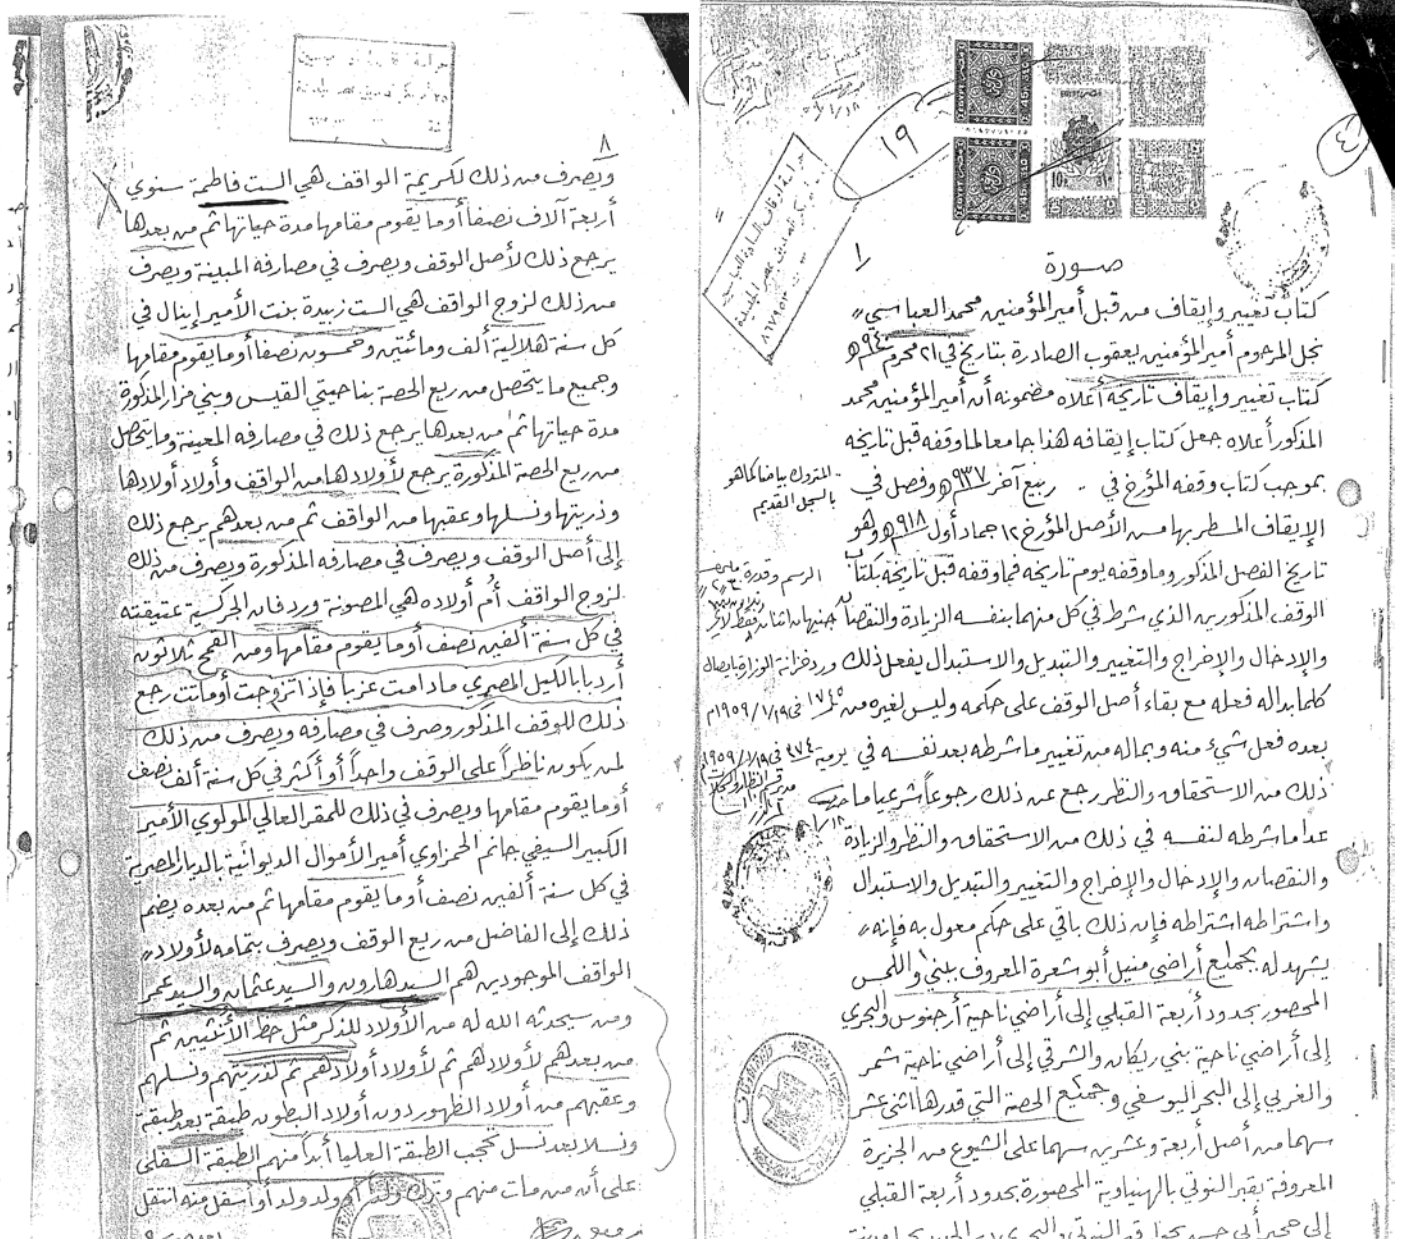 ٤
١٩
١
صورة
كتاب تغيير وإيقاف من قبل أمير المؤمنين محمد العباسي
نجل المرحوم أمير المؤمنين يعقوب الصادرة بتاريخ في ٢١ محرم
كتاب تغيير وإيقاف تاريخه أعلاه مضمونه أن أمير المؤمنين محمد
المذكور أعلاه جعل كتاب إيقافه هذا جامعا لما وقفه قبل تاريخه
بموجب كتاب وقفه المؤرخ في .. ربيع آخر ٩٣٧ه وفصل في
الإيقاف المسطر بها من الأصل المؤرخ ١٢ جماد أول ٩١٨ه وهو
تاريخ الفصل المذكور وما وقفه يوم تاريخه فما وقفه قبل تاريخه بكتاب
الوقف المذكورين الذي شرط في كل منهما بنفسه الزيادة والنقصان
والإدخال والإخراج والتغيير والتبديل والاستبدال يفعل ذلك
كلما بدا له فعله مع بقاء أصل الوقف على حكمه وليس لغيره من
بعده فعل شيء منه وبماله من تغيير ما شرطه بعد نفسه في
ذلك من الاستحقاق والنظر رجع عن ذلك رجوعاً شرعيا ما
عدا ما شرطه لنفسه في ذلك من الاستحقاق والنظر والزيادة
والنقصان والإدخال والإخراج والتغيير والتبديل والاستبدال
واشتراطه اشتراطه فإن ذلك باقي على حكم معول به فإنه
يشهد له بجميع أراضي منيل أبو شعرة المعروف ببلني واللمس
المحصور بحدود أربعة القبلي إلى أراضي ناحية أرجنوس والبحري
إلى أراضي ناحية بني ريكان والشرقي إلى أراضي ناحية شمر
والغربي إلى البحر اليوسفي وجميع الحصة التي قدرها اثنى عشر
سهما من أصل أربعة وعشرين سهما على الشيوع من الجزيرة
المعروفة بقبر النوتي بالهنياوية المحصورة بحدود أربعة القبلي
.. المتروك بياضا كما هو
بالسجل القديم
الرسم وقدره
جنيهان اثنان فقط لا غير
ورد خزانة الوزارة بإيصال
في ١٩/١/١٩٥٩م
يومية ٣٧٤ في ١٩/١/١٩٥٩
٨
ويصرف من ذلك لكريمة الواقف هي الست فاطمة سنوي
أربعة آلاف نصفا أو ما يقوم مقامها مدة حياتها ثم من بعدها
يرجع ذلك لأصل الوقف ويصرف في مصارفه المبينة ويصرف
من ذلك لزوج الواقف هي الست زبيدة بنت الأمير إينال في
كل سنة هلالية ألف ومائتين وخمسون نصفا أو ما يقوم مقامها
وجميع ما يتحصل من ريع الحصة بناحيتي القيس وبني مزار المذكورة
مدة حياتها ثم من بعدها يرجع ذلك في مصارفه المعينة وما يتحصل
من ريع الحصة المذكورة يرجع لأولادها من الواقف وأولاد أولادها
وذريتها ونسلها وعقبها من الواقف ثم من بعدهم يرجع ذلك
إلى أصل الوقف ويصرف في مصارفه المذكورة ويصرف من ذلك
لزوج الواقف أم أولاده هي المصونة وردفان الجركسية عتيقته
في كل سنة ألفين نصف أو ما يقوم مقامها ومن القمح ثلاثون
أردبا بالكيل المصري ما دامت عزبا فإذا تزوجت أو ماتت رجع
ذلك للوقف المذكور وصرف في مصارفه ويصرف من ذلك
لمن يكون ناظراً على الوقف واحداً أو أكثر في كل سنة ألف نصف
أو ما يقوم مقامها ويصرف في ذلك للمقر العالي المولوي الأمير
الكبير السيفي جانم الحمزاوي أمير الأموال الديوانية بالديار المصرية
في كل سنة ألفين نصف أو ما يقوم مقامها ثم من بعده يضم
ذلك إلى الفاضل من ريع الوقف ويصرف بتمامه لأولاد
الواقف الموجودين هم السيد هارون والسيد عثمان والسيد عمر
ومن سيحدثه الله له من الأولاد للذكر مثل حظ الأنثيين ثم
من بعدهم لأولادهم ثم لأولاد أولادهم ثم لذريتهم ونسلهم
وعقبهم من أولاد الظهور دون أولاد البطون طبقة بعد طبقة
ونسلا بعد نسل تحجب الطبقة العليا أبداً منهم الطبقة السفلى
على أن من مات منهم وترك ولداً أو ولد ولد أو أسفل منه انتقل